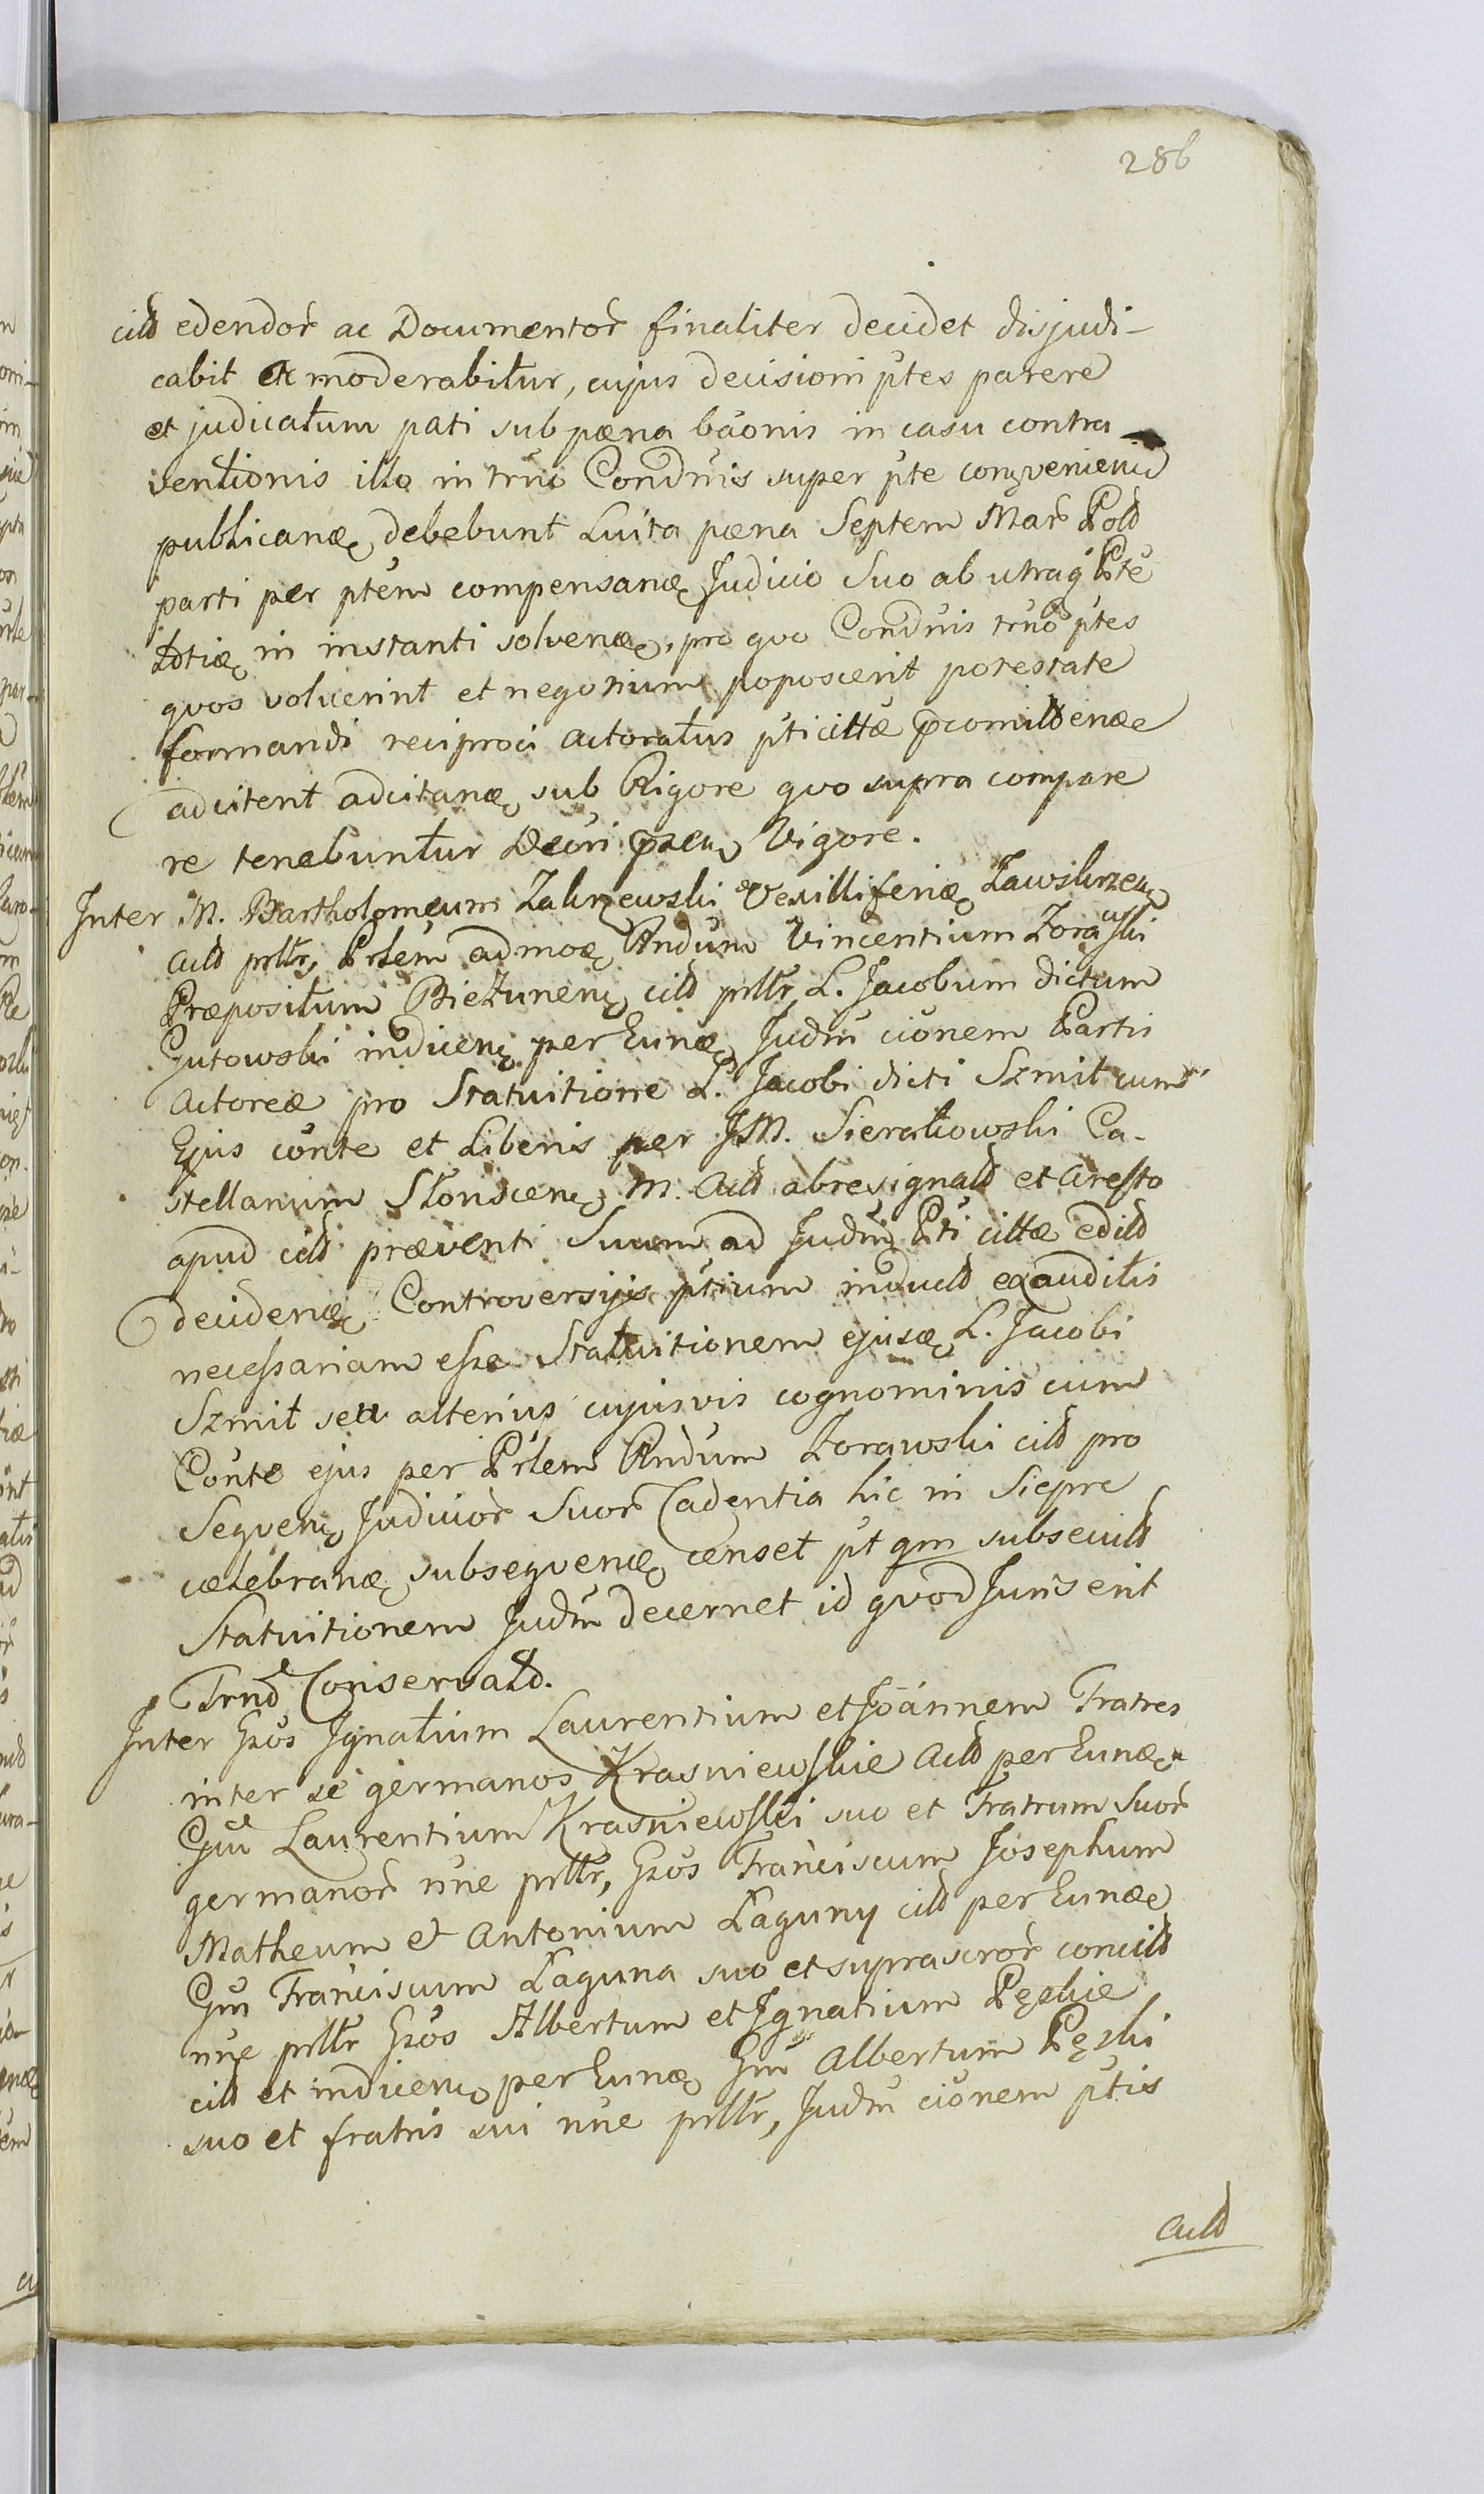 286
citt edendor ac Documentor finaliter decidet disjudi-
cabit et moderabitur, cujus decisioni ptes parere
et judicatum pati sub pæna bãonis in casu contra
ventionis illa in trno Condnis super pte conveniend
publicanæ debebunt Luita pæna Septem Mar Pold
parti per ptem compensanæ Judicio Suo ab utraq Pte
in instanti solvenæ, pro quo Condnis trno ptes
quos voluerint et negotium poposcerit potestate
formandi reciproci actoratus pti cittæ
adcitent adcitanæ sub Rigore quo supra compare
re tenebuntur Decri Vigore.
Inter M. Bartholomeum Zakrzewski Vexilliferiæ Zawskrzen
actt prttr, Prlem admoæ Rndum Vincentium Zorawski
Præpositum Biezunen citt prttr L. Jacobum dictum
Gutowski indicen per Eunæ Judm cionem Partis
Actoreæ pro Statuitione L. Jacobi dicti Szmit cum
Ejus conte et Liberis per JM. Sierakowski Ca-
stellanum Słonscen M. Actt abresignatt et Aresto
apud citt præventi Suum ad Judm Pti cittæ editt
decidenæ Controversijs ptium inductt exauditis
necessariam esse Statuitionem ejusæ L. Jacobi
Szmit seu alterius cujusvis cognominis cum
Conte ejus per Prlem Rndum Zorawski citt pro
Seqven Judicior Suor Cadentia hic in Siepre
cælebranæ subseqvenæ censet pt qm subsecutt
Statuitionem Judm decernet id qvod Juris erit
Trno Conservatt.
Inter Gsos Ignatium Laurentium et Joannem Fratres
inter se germanos Krasniewskie Actt per Eunæ
Gm Laurentium Krasniewski suo et Fratrum Suor
germanor nne prttr, Gsos Franciscum Josephum
Matheum et Antonium Łaguny citt per Eunæ
Gm Franciscum Łaguna suo et suprascror concitt
nne prttr Gsos Albertum et Ignatium Pęskie
citt et indicen per Eunæ Gm Albertum Pęski
suo et fratris sui nne prttr, Judm cionem ptis
Actt